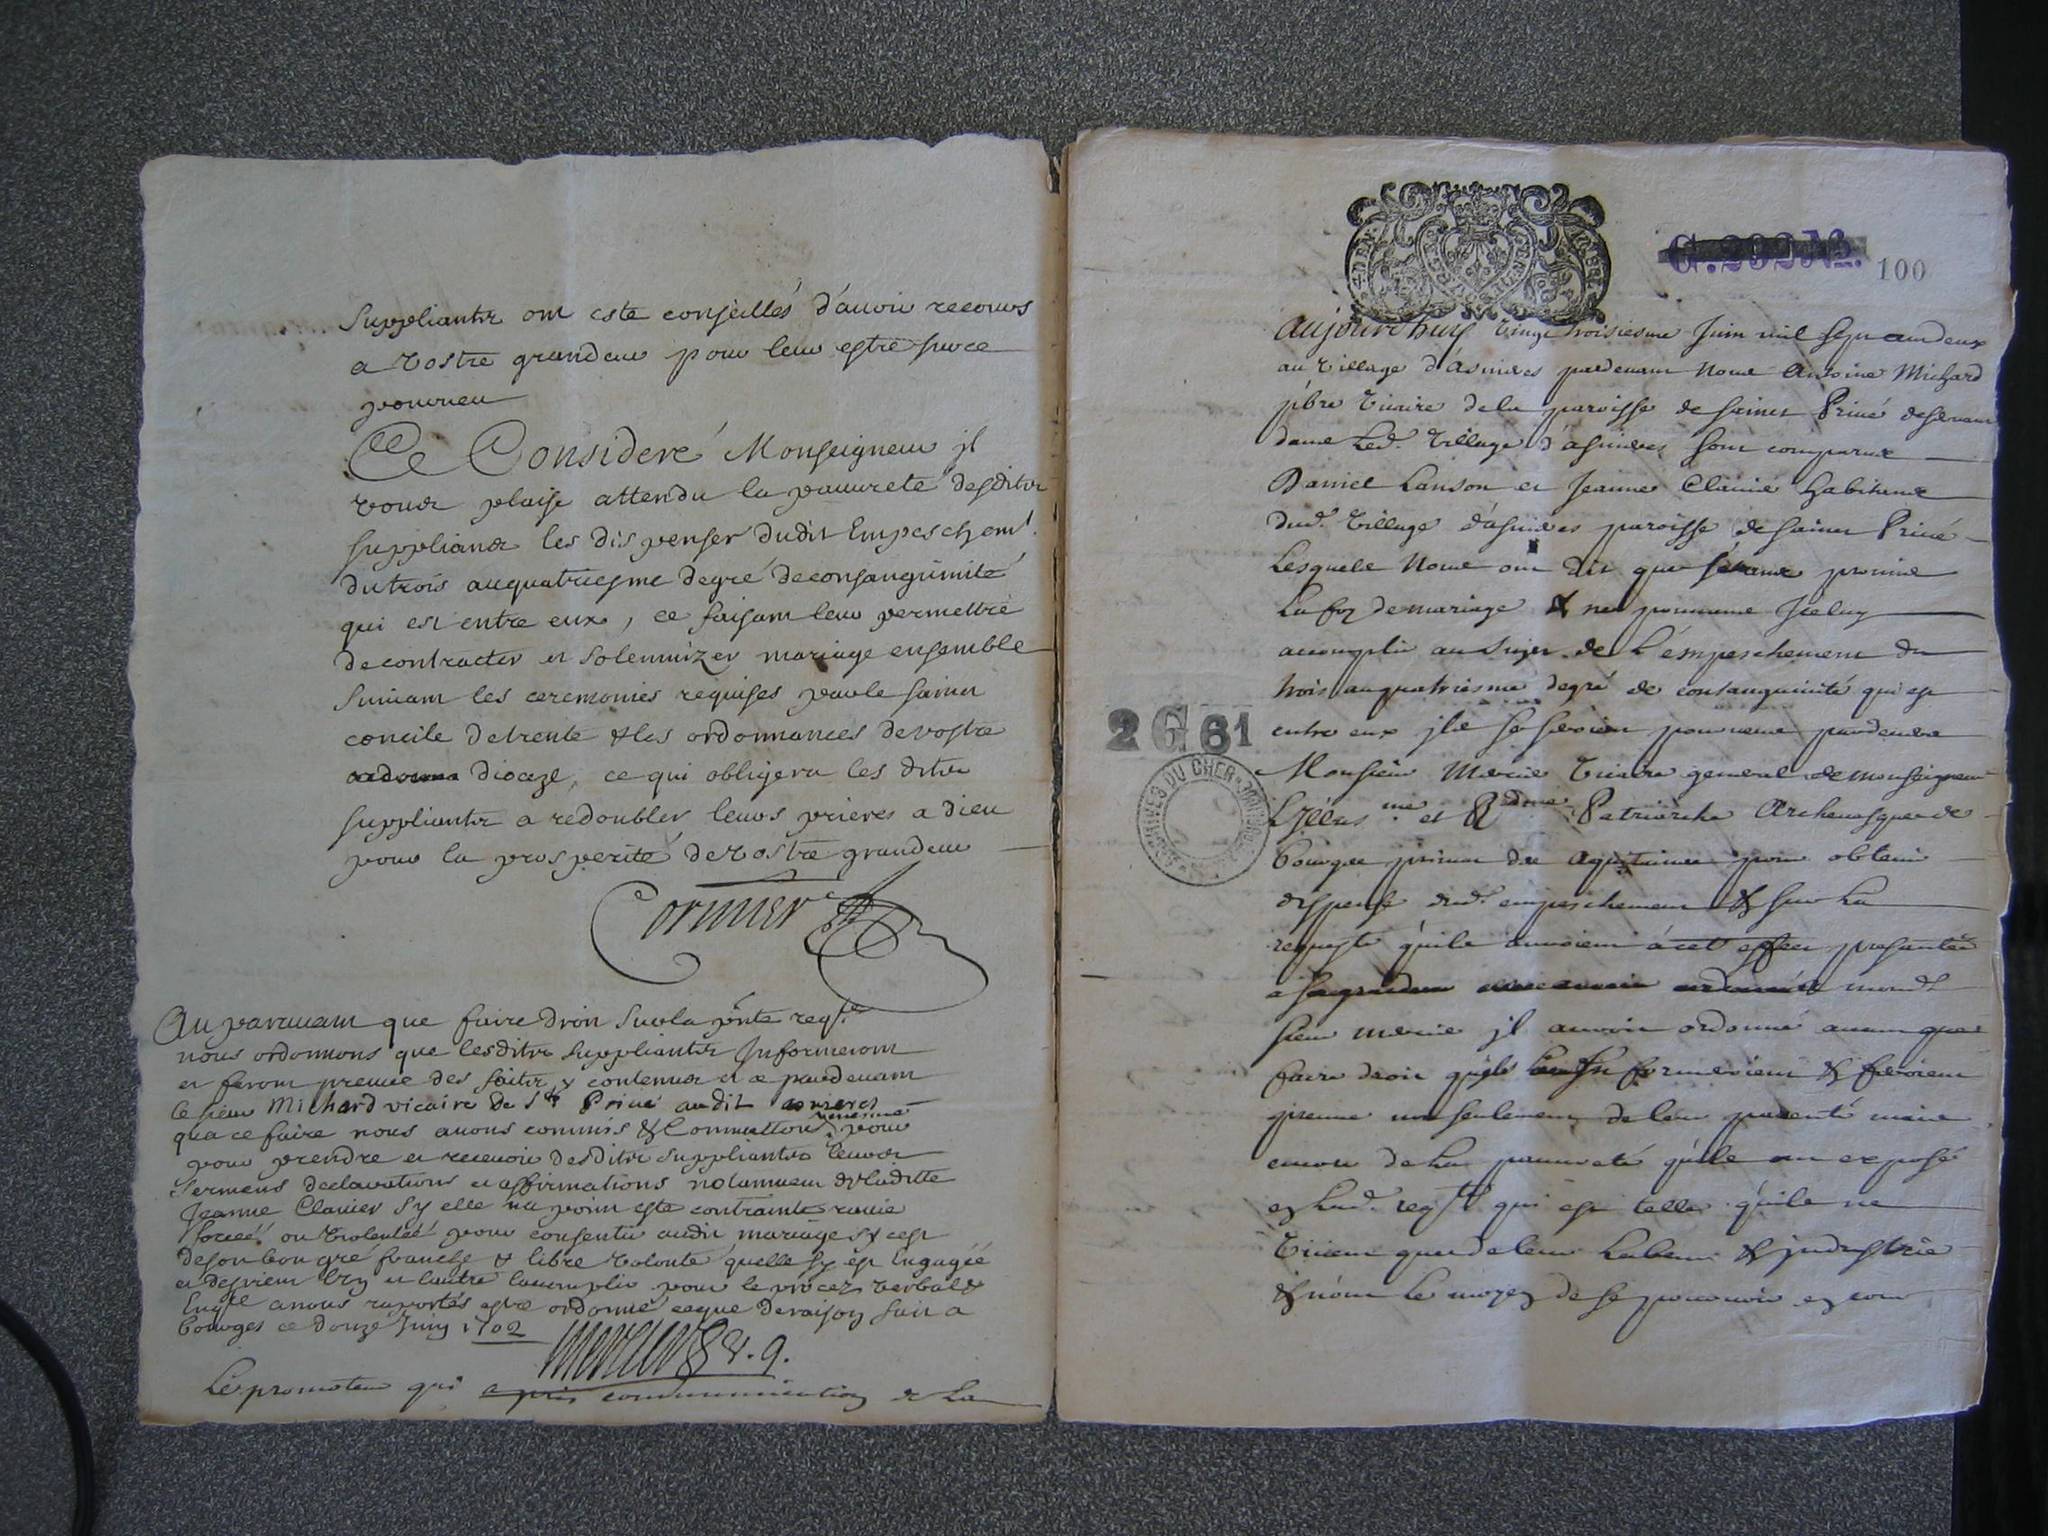 suppliants ont esté conseillés d'avoir recours
a vostre grandeur pour leur estre sur ce
pourveu
Ce Consideré Monseigneur jl
vous plaise attendu la pauvreté desdits
suppliants les dispenser dudit Empeschemt.
du trois au quatriesme degré de consanguinité
qui est entre eux, ce faisant leur permettre
de contracter et solemnizer mariage ensemble
suivant les ceremonies requises par le saint
concile de trente & les ordonnances de vostre
diocaze, ce qui obligera les dits
suppliants a redoubler leurs prieres a dieu
pour la prosperité de vostre grandeur
Cormier
Auparavant que faire droit sur la pnte reqte
nous ordonnons que lesdits suppliants Informeront
et feront preuve des faits y contenus et ce pardevant
le sieur Michard vicaire de St Privé audit asnieres
qua ce faire nous avons commis & Commettons pour
pour prendre et recevoir desdits suppliants leurs
sermens declarations et affirmations notamment de laditte
Jeanne Clavier sy elle na point esté contrainte ravie
forcée ou violentée pour consentir audit mariage sy cest
de son bon gré franche & libre volonté quelle sy est Engagée
et desirent lun et lautre laccomplir pour le procez verbal &
Enqte a nous raportés estre ordonné ce que de raison fait a
Bourges ce douze Juin 1702
Mercier v. g.
Le promoteur qui a pris communication de la
G. 292
100
Aujourdhuy vingt troisiesme Juin mil sept cent deux
au village d'Asnieres pardevant Nous Antoine Michard
pbre vicaire de la paroisse de saint Privé deservant
dans Led. village d'asnieres sont comparus
Daniel Lanson et Jeanne Clavié habitans
dud. village d'asnieres paroisse de saint Privé
Lesquels Nous ont dit que promis
La foy de mariage & ne pouvant Iceluy
accomplir au sujet de L'empeschement du
trois au quatriesme degré de consanguinité qui est
entre eux jls se seroient pourveus pardevers
Monsieur Mercie vicaire general de monseigneur
L'Illus.me et R.dme Patriarche Archevesque de
Bourges primat des Aquitaines pour obtenir
dispense dud. empeschement & sur La
requeste qu'ils auroient à cet effect presentée
a sa grandeur mond.
sieur mercie jl auroit ordonné avant que
faire droit qu'ils Informeroient & feroient
preuve non seulement de leur parenté mais
encore de La pauvreté qu'ils ont exposé
en Lad. reqte qui est telle qu'ils ne
vivent que de leur Labeur & jndustrie
& n'ont Le moyen de se pourvoir en cour
2 G 61
ARCHIVES DU CHER